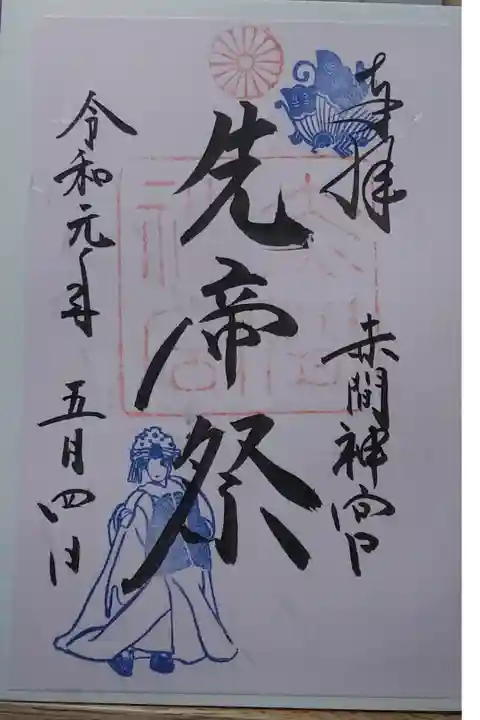 奉拝
赤間神宮
先帝祭
令和元年 五月四日
赤間神宮